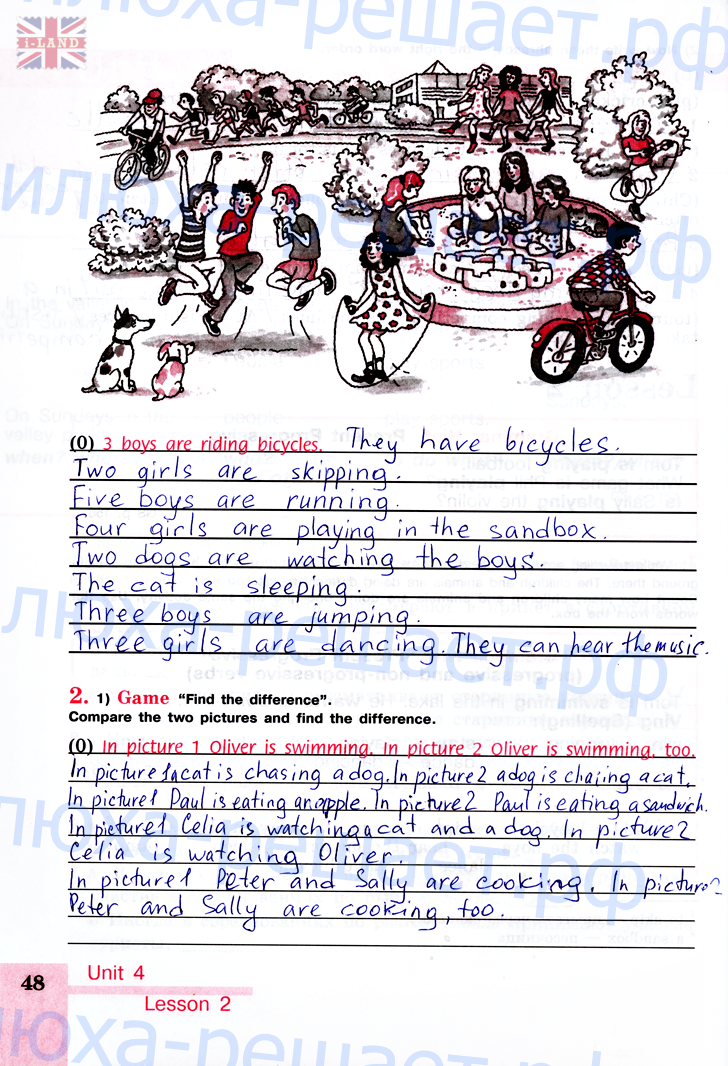 i-LAND
илюха-решает.рф
илюха-решает.рф
(0) 3 boys are riding bicycles. They have bicycles.
Two girls are skipping.
Five boys are running.
Four girls are playing in the sandbox.
Two dogs are watching the boys.
The cat is sleeping.
Three boys are jumping.
Three girls are dancing. They can hear the music.
илюха-решает.рф
2. 1) Game “Find the difference”.
Compare the two pictures and find the difference.
(0) In picture 1 Oliver is swimming. In picture 2 Oliver is swimming, too.
In picture 1 a cat is chasing a dog. In picture 2 a dog is chasing a cat.
In picture 1 Paul is eating an apple. In picture 2 Paul is eating a sandwich.
In picture 1 Celia is watching a cat and a dog. In picture 2
Celia is watching Oliver.
In picture 1 Peter and Sally are cooking. In picture 2
Peter and Sally are cooking, too.
илюха-решает.рф
48
Unit 4
Lesson 2
илюха-решает.рф